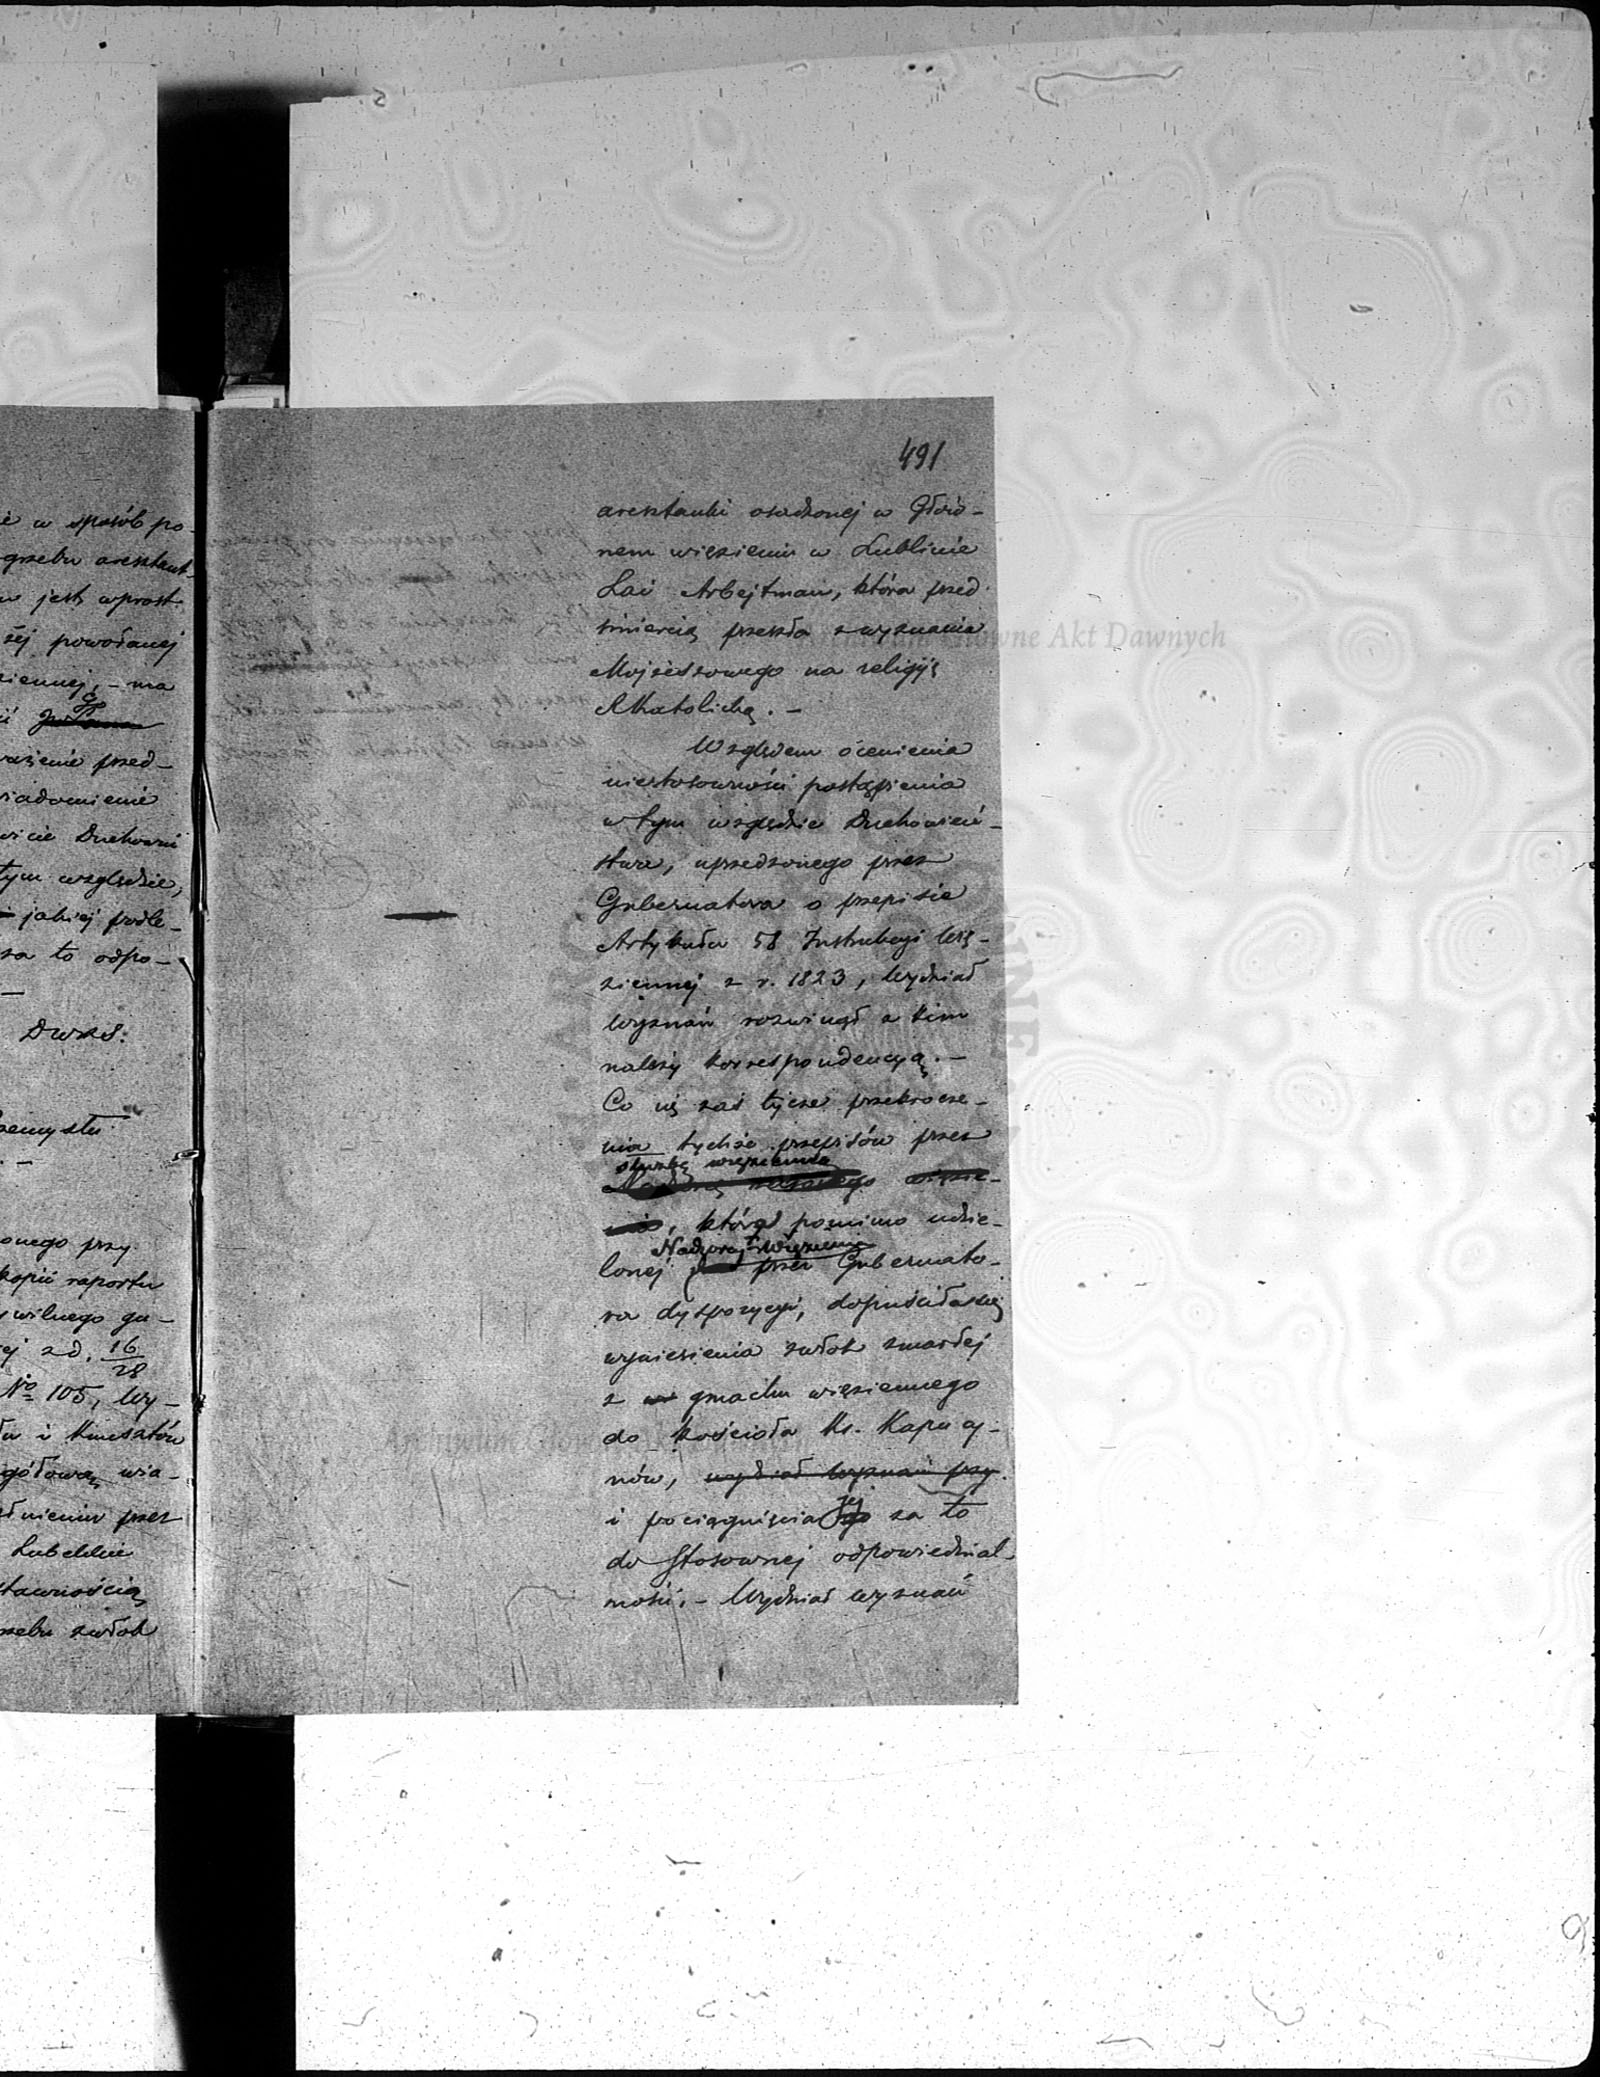 è w sposób po-
grzebu aresztant-
w jest wprost
żéj powołanej
ziennej, - ma
ważenie przed-
wiadomienie
wicie Duchowni
tym względzie,
jakiej podle-
za to odpo-
DWRS.
zemysłu
onego przy
kopii raportu
wilnego gu-
ej z d. 16/28
No 105, Wy-
ła i Kunsztów
gółową wia-
łnieniu przez
Lubelskie
stawnością
zebu zwłok
491
aresztantki osadzonej w Głów-
nem więzieniu w Lublinie
Łai Arbejtman, która przed
śmiercią przeszła z wyznania
Mojżeszowego na religiję
Rkatolicką. -
Względem ocenienia
niestosowności postąpienia
w tym względzie Duchowień-
stwa, uprzedzonego przez
Gubernatora o przepisie
Artykułu 58 Instrukcyi Wię-
ziennej z r. 1823, Wydział
Wyznań rozwinął z kim
należy korrespondencyą. -
Co się zaś tycze przekrocze-
nia tychże przepisów przez
służbę więzienną
Nadzorcę więzie-
nia, która pomimo udzie-
Nadzorcy więzienia
lonej przez Gubernato-
ra dyspozycyi, dopuściła się
wyniesienia zwłok zmarłej
z gmachu więziennego
do kościoła Ks. Kapucy-
nów, wydział wyznań przy
i pociągnięcia jej za to
do stosownej odpowiedzial-
ności, - Wydział wyznań
Archiwum Główne Akt Dawnych